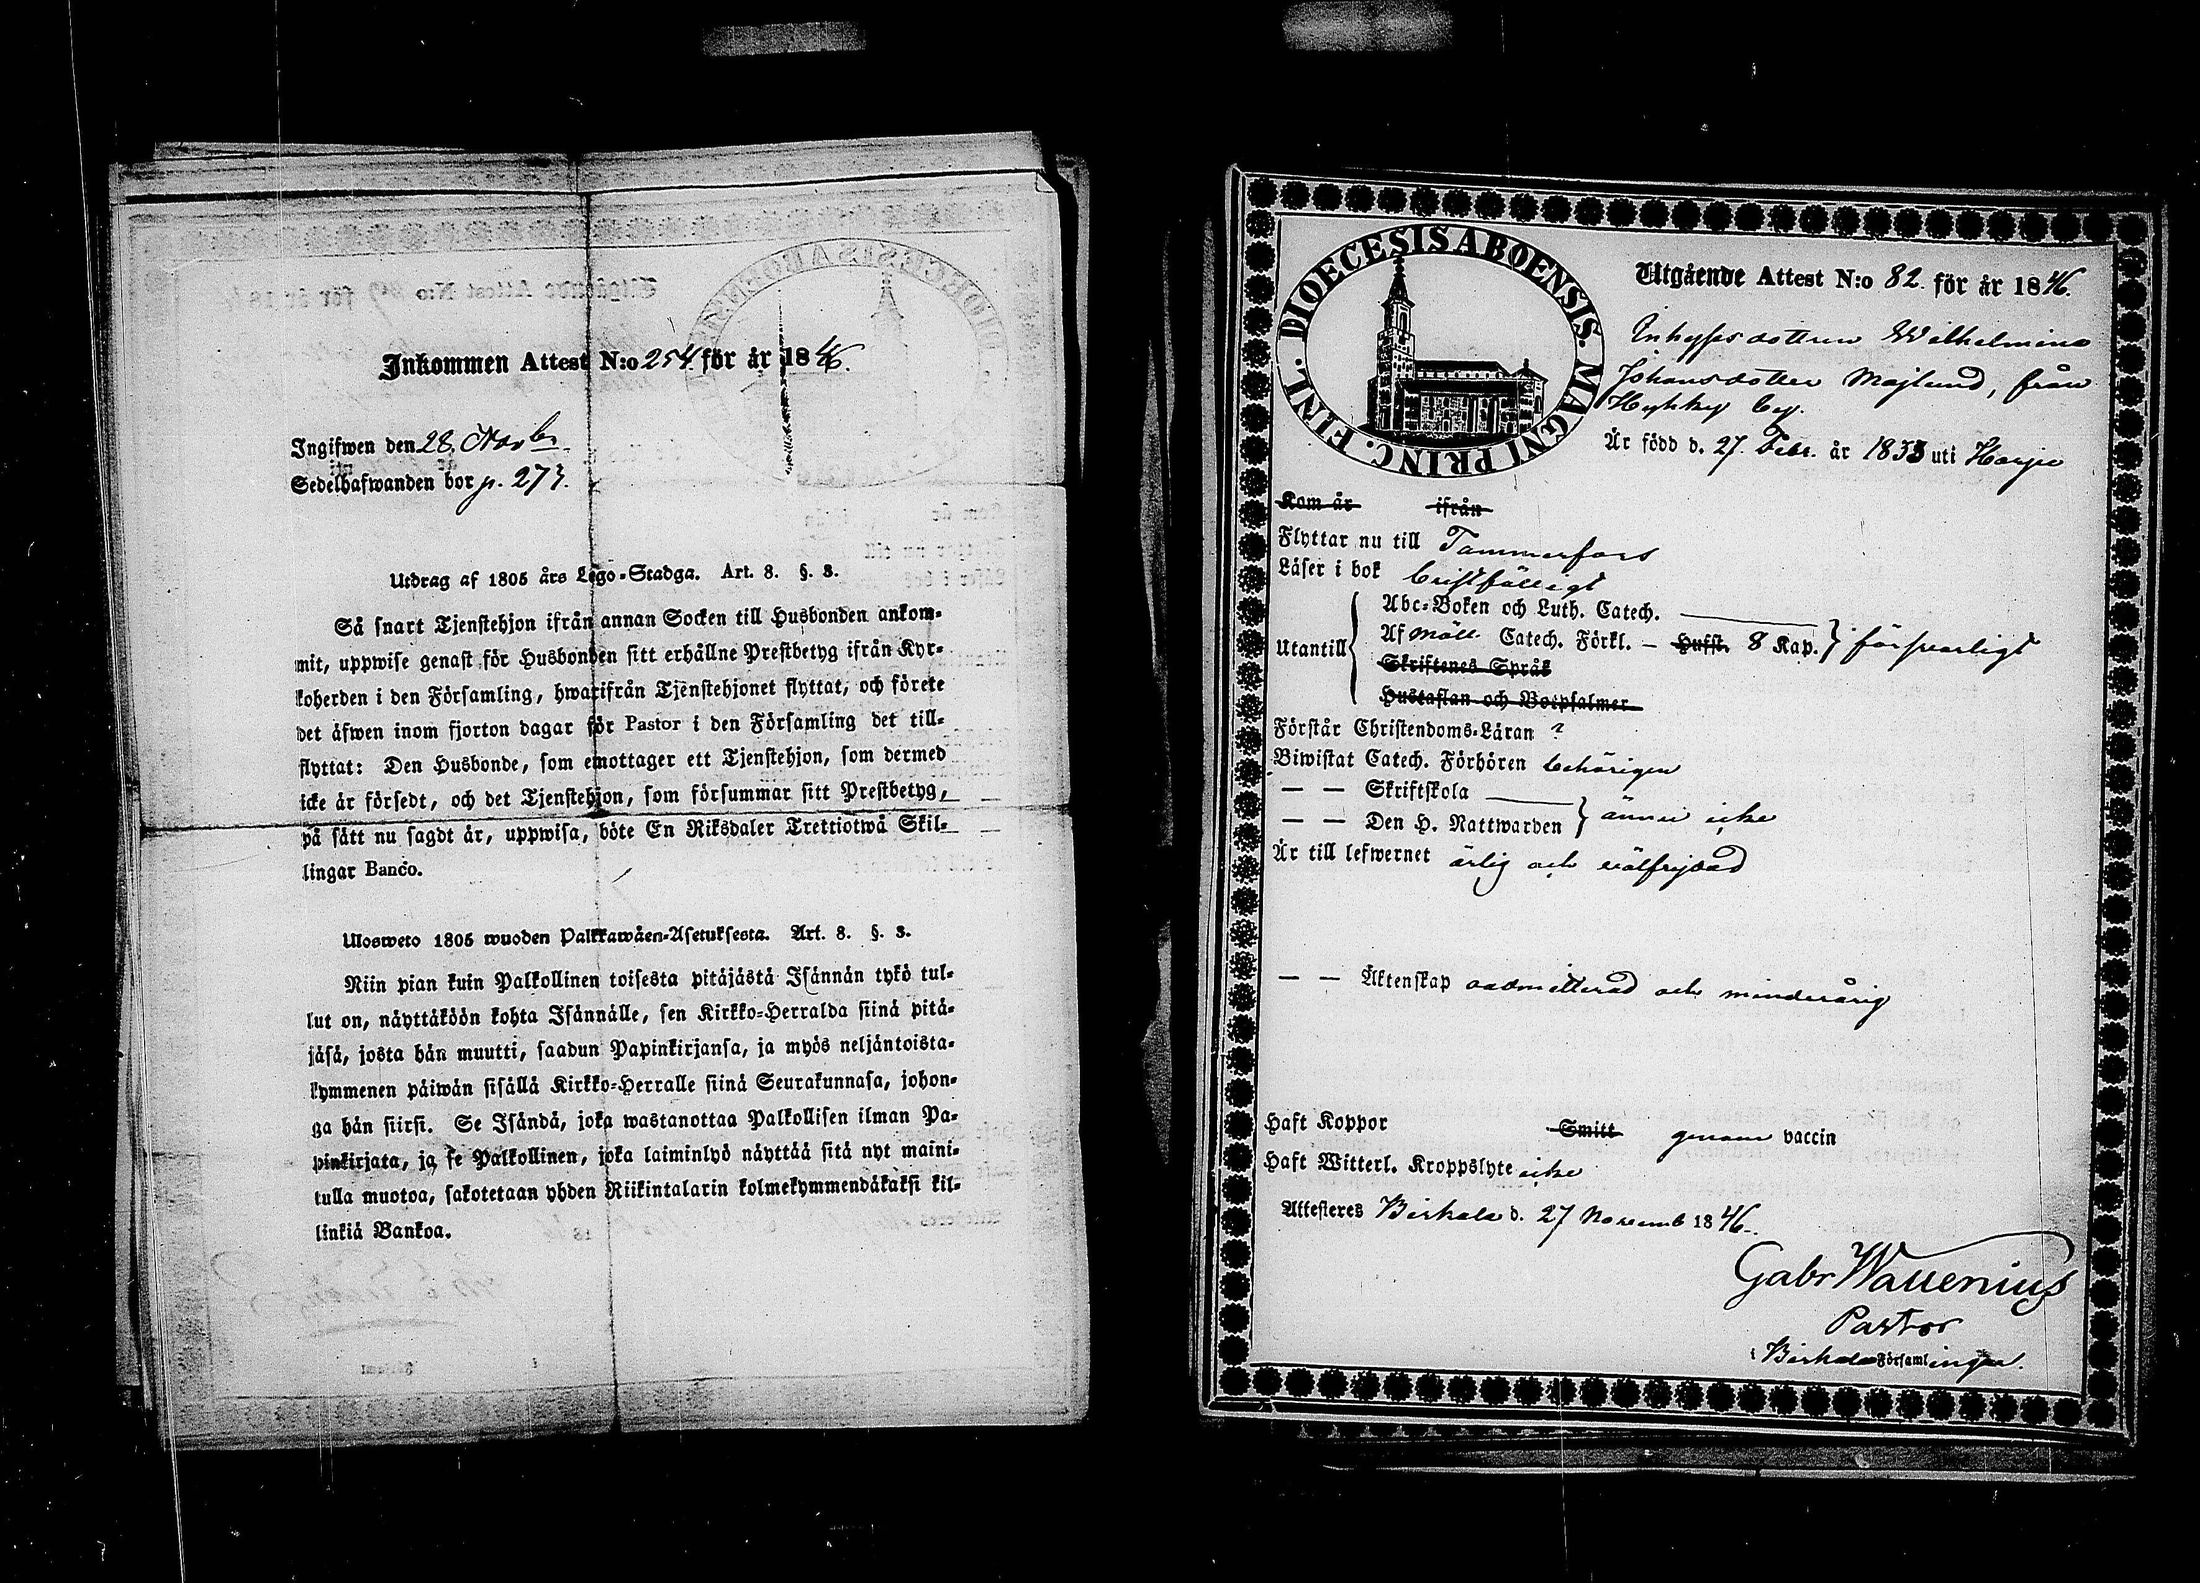 Inkommen Attest N:o 254. för år 1846.
Ingifwen den 28. Novbr.
Sedelhafwanden bor p. 273.
Utdrag af 1805 års Lego-Stadga. Art. 8. §. 3.
Så snart Tjenstehjon ifrån annan Socken till Husbonden ankom-
mit, uppwise genast för Husbonden sitt erhållne Prestbetyg ifrån Kyr-
koherden i den Församling, hwarifrån Tjenstehjonet flyttat, och förete
det äfwen inom fjorton dagar för Pastor i den Församling det till-
flyttat: Den Husbonde, som emottager ett Tjenstehjon, som dermed
icke är försedt, och det Tjenstehjon, som försummar sitt Prestbetyg,
på sätt nu sagdt är, uppwisa, böte En Riksdaler Trettiotwå Skil-
lingar Banco.
Ulosweto 1805 wuoden Palkkawäen-Asetuksesta. Art. 8. §. 3.
Niin pian kuin Palkollinen toisesta pitäjästä Isännän tykö tul-
lut on, näyttäköön kohta Isännälle, sen Kirkko-Herralda siinä pitä-
jäsä, josta hän muutti, saadun Papinkirjansa, ja myös neljäntoista-
kymmenen päiwän sisällä Kirkko-Herralle siinä Seurakunnasa, johon-
ga hän siirsi. Se Isändä, joka wastanottaa Palkollisen ilman Pa-
pinkirjata, ja se Palkollinen, joka laiminlyö näyttää sitä nyt maini-
tulla muotoa, sakotetaan yhden Riikintalarin kolmekymmendäkaksi kil-
linkiä Bankoa.
DIOECESIS ABOENSIS. MAGNI PRINC. FINL.
Utgående Attest N:o 82. för år 1846.
Inhysesdottren Wilhelmina
Johansdotter Majlund, från
Hyhky by.
Är född d. 27. Febr. år 1833 uti Harju
Kom år ifrån
Flyttar nu till Tammerfors
Läser i bok bristfälligt
Abc-Boken och Luth. Catech.
Utantill Af Catech. Förkl. — Hufst. 8 Kap. försvarligt
Skriftenes Språk
Hustaflan och Botpsalmer
Förstår Christendoms-Läran ?
Biwistat Catech. Förhören behörigen
— — Skriftskola
— — Den H. Nattwarden ännu icke
Är till lefwernet ärlig och välfrejdad
— — Äktenskap oadmitterad och minderårig
Haft Koppor Smitt genom vaccin
Haft Witterl. Kroppslyte icke
Attesteres Birkala d. 27 Novemb 1846.
Gabr Wallenius
Pastor
i Birkala Församlingen.